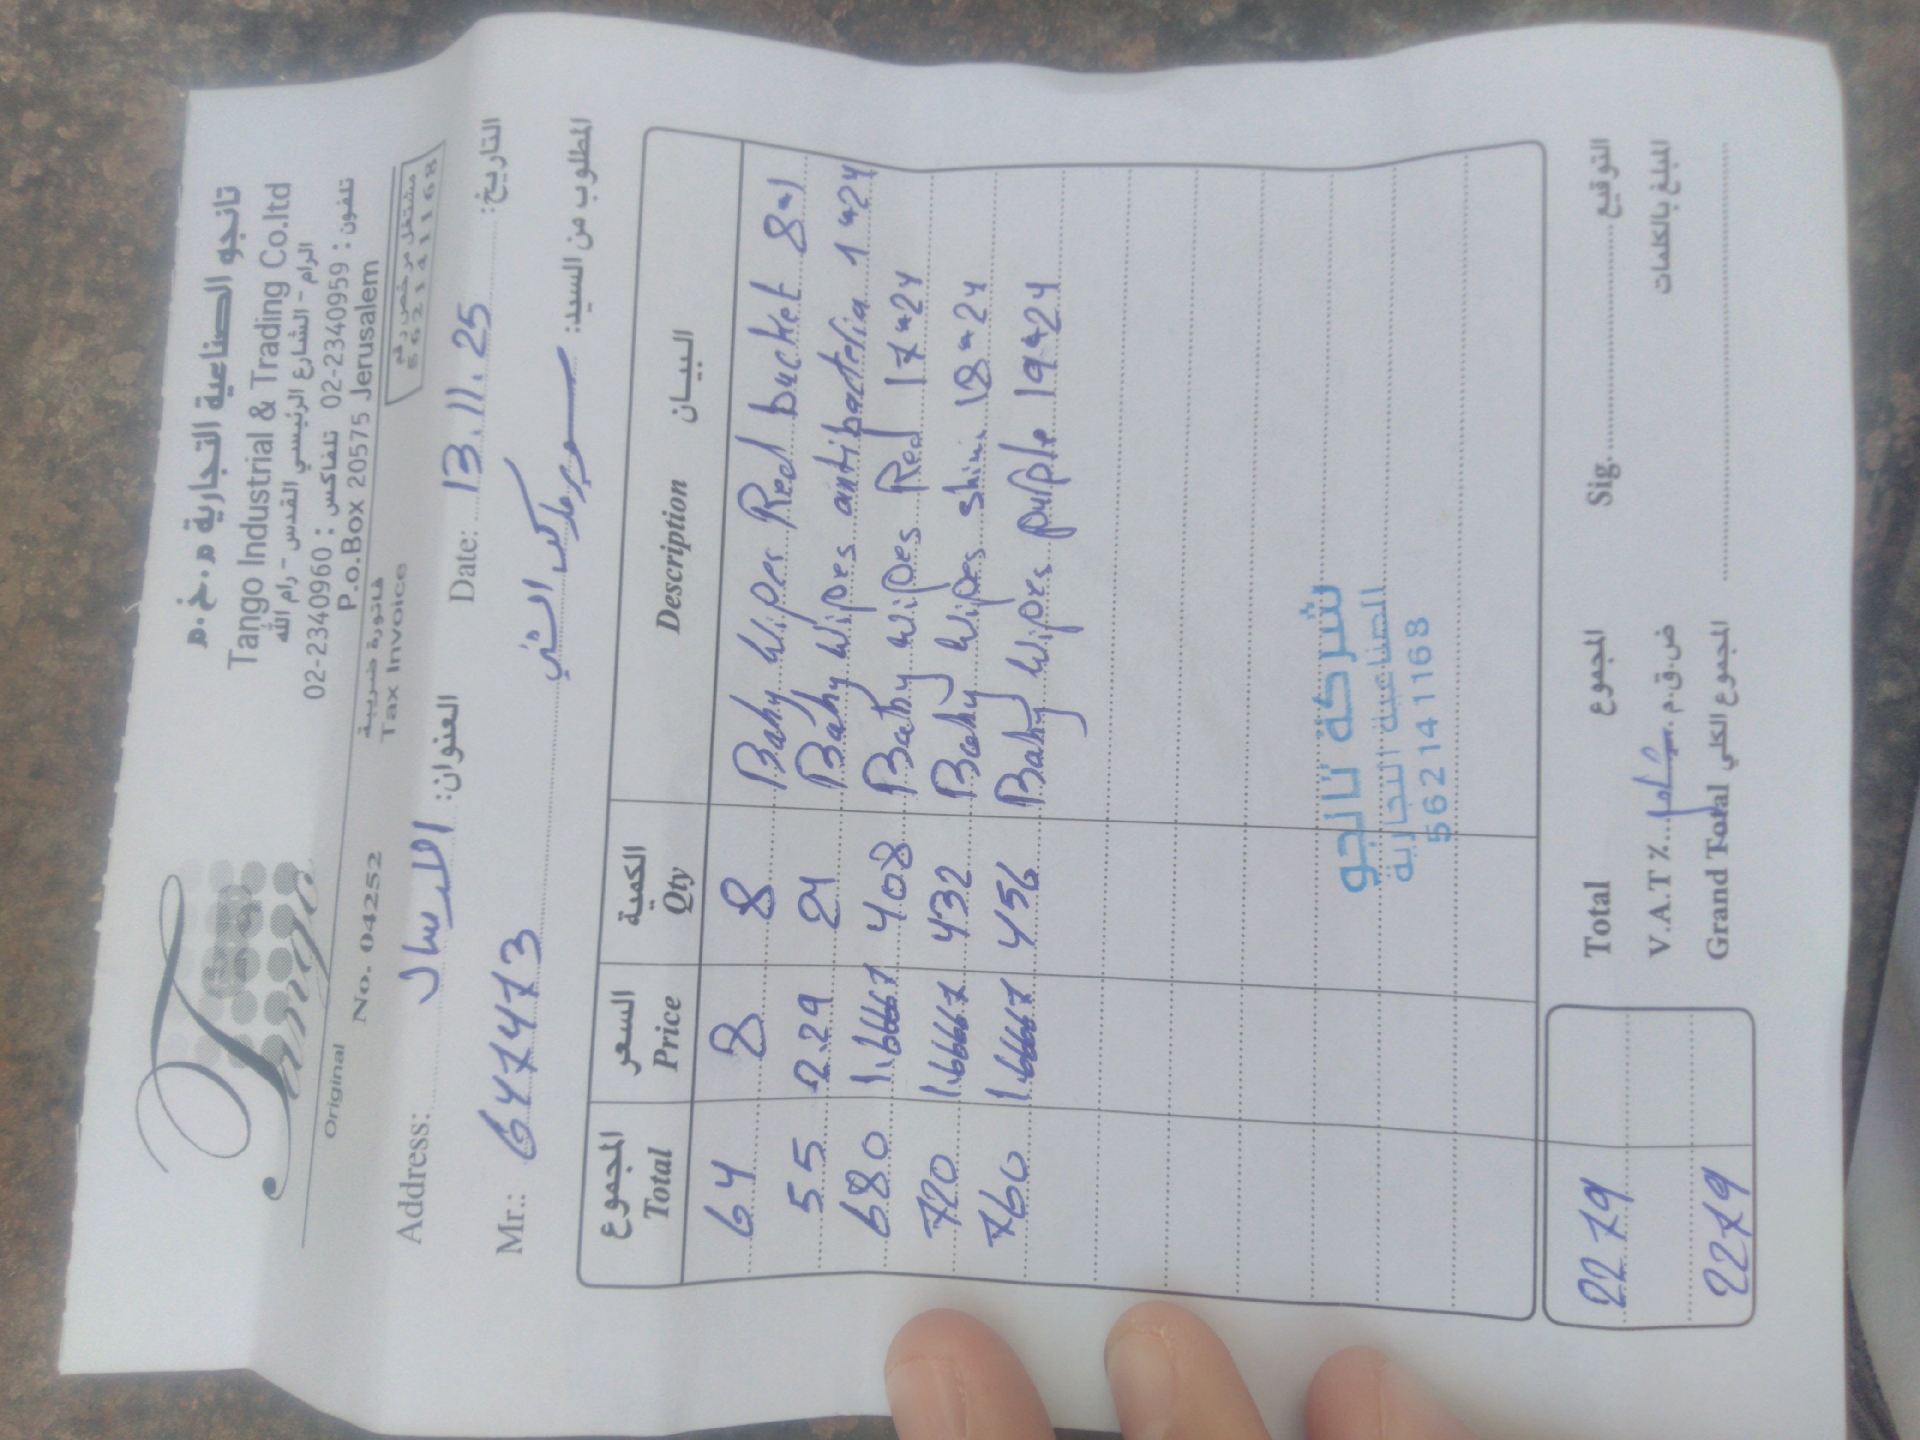 Tango
تانجو الصناعية التجارية م.خ.م
Tango Industrial & Trading Co.ltd
الرام - الشارع الرئيسي القدس - رام الله
تلفون : 02-2340959 تلفاكس : 02-2340960
P.o.Box 20575 Jerusalem
فاتورة ضريبية
Original No. 04252 Tax Invoice
مشتغل مرخص رقم
562141168
Address: العنوان: الارسال Date: 13.11.25 التاريخ:
Mr.: 647473 سوبرماركت الشني المطلوب من السيد:
المجموع السعر الكمية
Total Price Qty Description البيـــان
64 8 8 Baby Wipes Red bucket 8*1
55 2.29 24 Baby Wipes antibacteria 1*24
680 1.66667 408 Baby Wipes Red 17*24
720 1.66667 432 Baby Wipes skin 18*24
760 1.66667 456 Baby Wipes purple 19*24
شركة تانجو
الصناعية التجارية
562141168
2279 Total المجموع Sig. التوقيع
V.A.T %. شامل ض.ق.م. المبلغ بالكلمات
2279 Grand Total المجموع الكلي